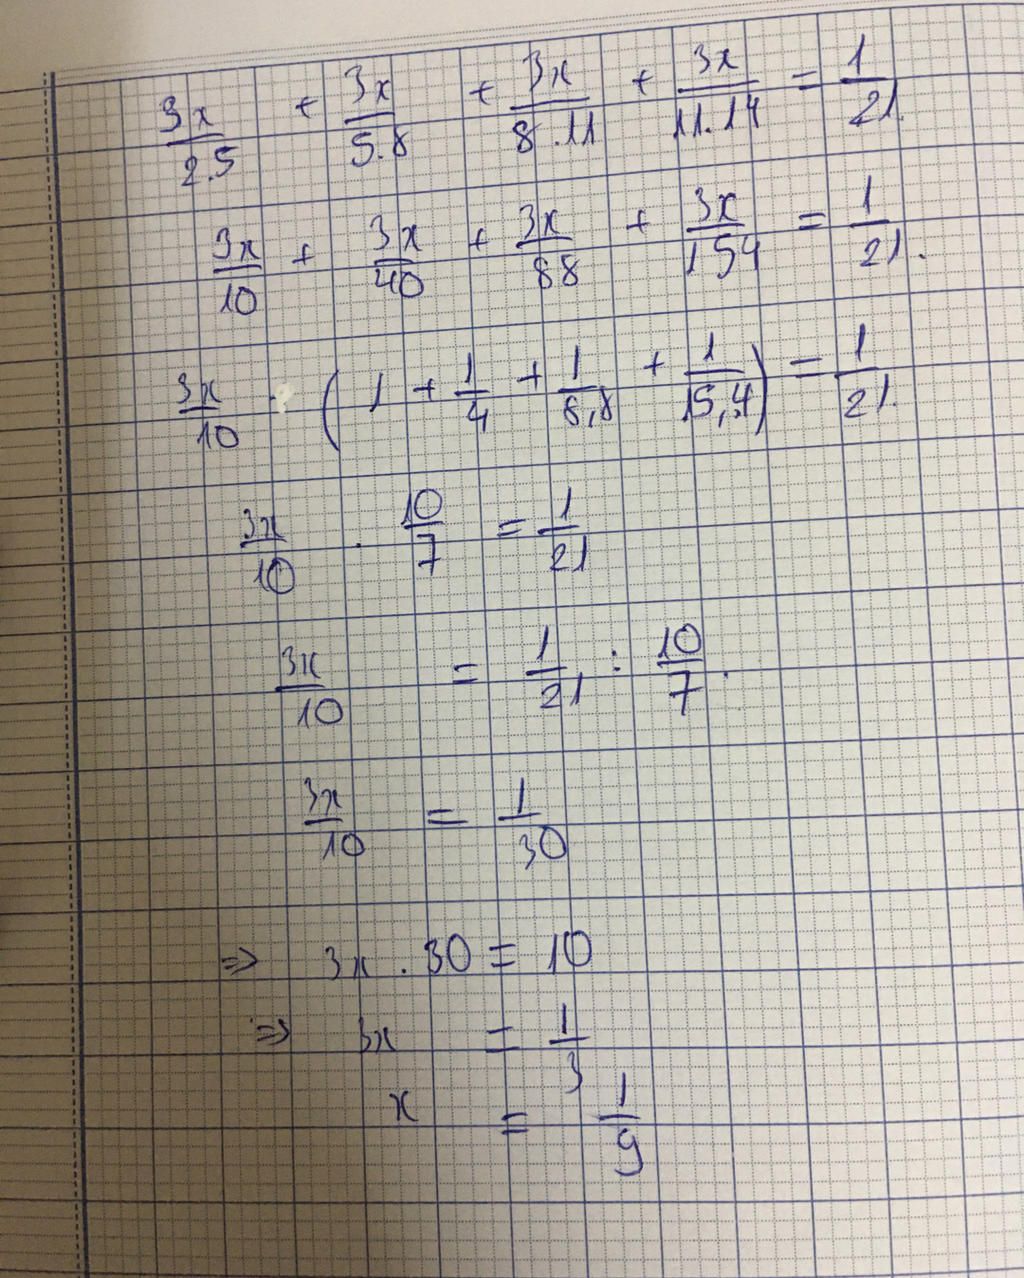 3x/2.5 + 3x/5.8 + 3x/8.11 + 3x/11.14 = 1/21
3x/10 + 3x/40 + 3x/88 + 3x/154 = 1/21.
3x/10 . (1 + 1/4 + 1/8,8 + 1/15,4) = 1/21.
3x/10 . 10/7 = 1/21
3x/10 = 1/21 : 10/7.
3x/10 = 1/30
=> 3x . 30 = 10
=> 3x = 1/3
x = 1/9